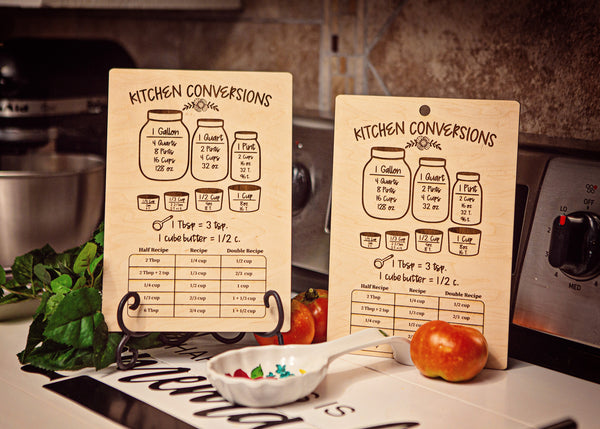 KITCHEN CONVERSIONS
1 Gallon
4 Quarts
8 Pints
16 Cups
128 oz
1 Quart
2 Pints
4 Cups
32 oz
1 Pint
2 Cups
16 oz
32 T.
96 t.
1/2 Cup
1 Cup
8 oz
16 T.
1 Tbsp = 3 tsp.
1 cube butter = 1/2 c.
Half Recipe Recipe Double Recipe
2 Tbsp 1/4 cup 1/2 cup
2 Tbsp + 2 tsp 1/3 cup 2/3 cup
1/4 cup 1/2 cup 1 cup
1/3 cup 2/3 cup 1 + 1/3 cup
6 Tbsp 3/4 cup 1 + 1/2 cup
KITCHEN CONVERSIONS
1 Gallon
4 Quarts
8 Pints
16 Cups
128 oz
1 Quart
2 Pints
4 Cups
32 oz
1 Pint
2 Cups
16 oz
32 T.
96 t.
1/2 Cup
1 Cup
8 oz
16 T.
1 Tbsp = 3 tsp.
1 cube butter = 1/2 c.
Half Recipe Recipe Double Recipe
2 Tbsp 1/4 cup 1/2 cup
2 Tbsp + 2 tsp 1/3 cup 2/3 cup
1/4 cup 1/2 cup
OFF
LO
HI
MED
IS